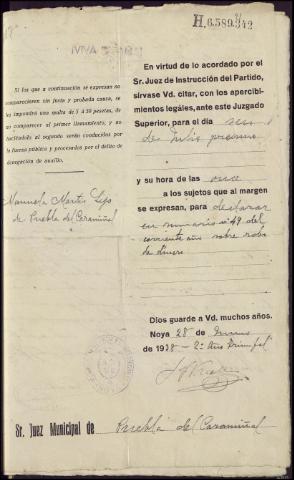 H.6.589
En virtud de lo acordado por el
Sr. Juez de Instrucción del Partido,
sírvase Vd. citar, con los apercibi-
mientos legales, ante este Juzgado
Superior, para el día
de Julio proximo
y su hora de las once
a los sujetos que al margen
se expresan, para declarar
en sumario nº 49 del
corriente año sobre robo
de dinero
Dios guarde a Vd. muchos años.
Noya 28 de Junio
de 1938 - 2º Año Triunfal
Si los que a continuación se expresan no
comparecieren sin justa y probada causa, se
les impondrá una multa de 5 a 50 pesetas, de
no comparecer al primer llamamiento, y no
haciéndolo al segundo serán conducidos por
la fuerza pública y procesados por el delito de
denegación de auxilio.
Manuela Martis
de Puebla del Caramiñal
Sr. Juez Municipal de Puebla del Caramiñal